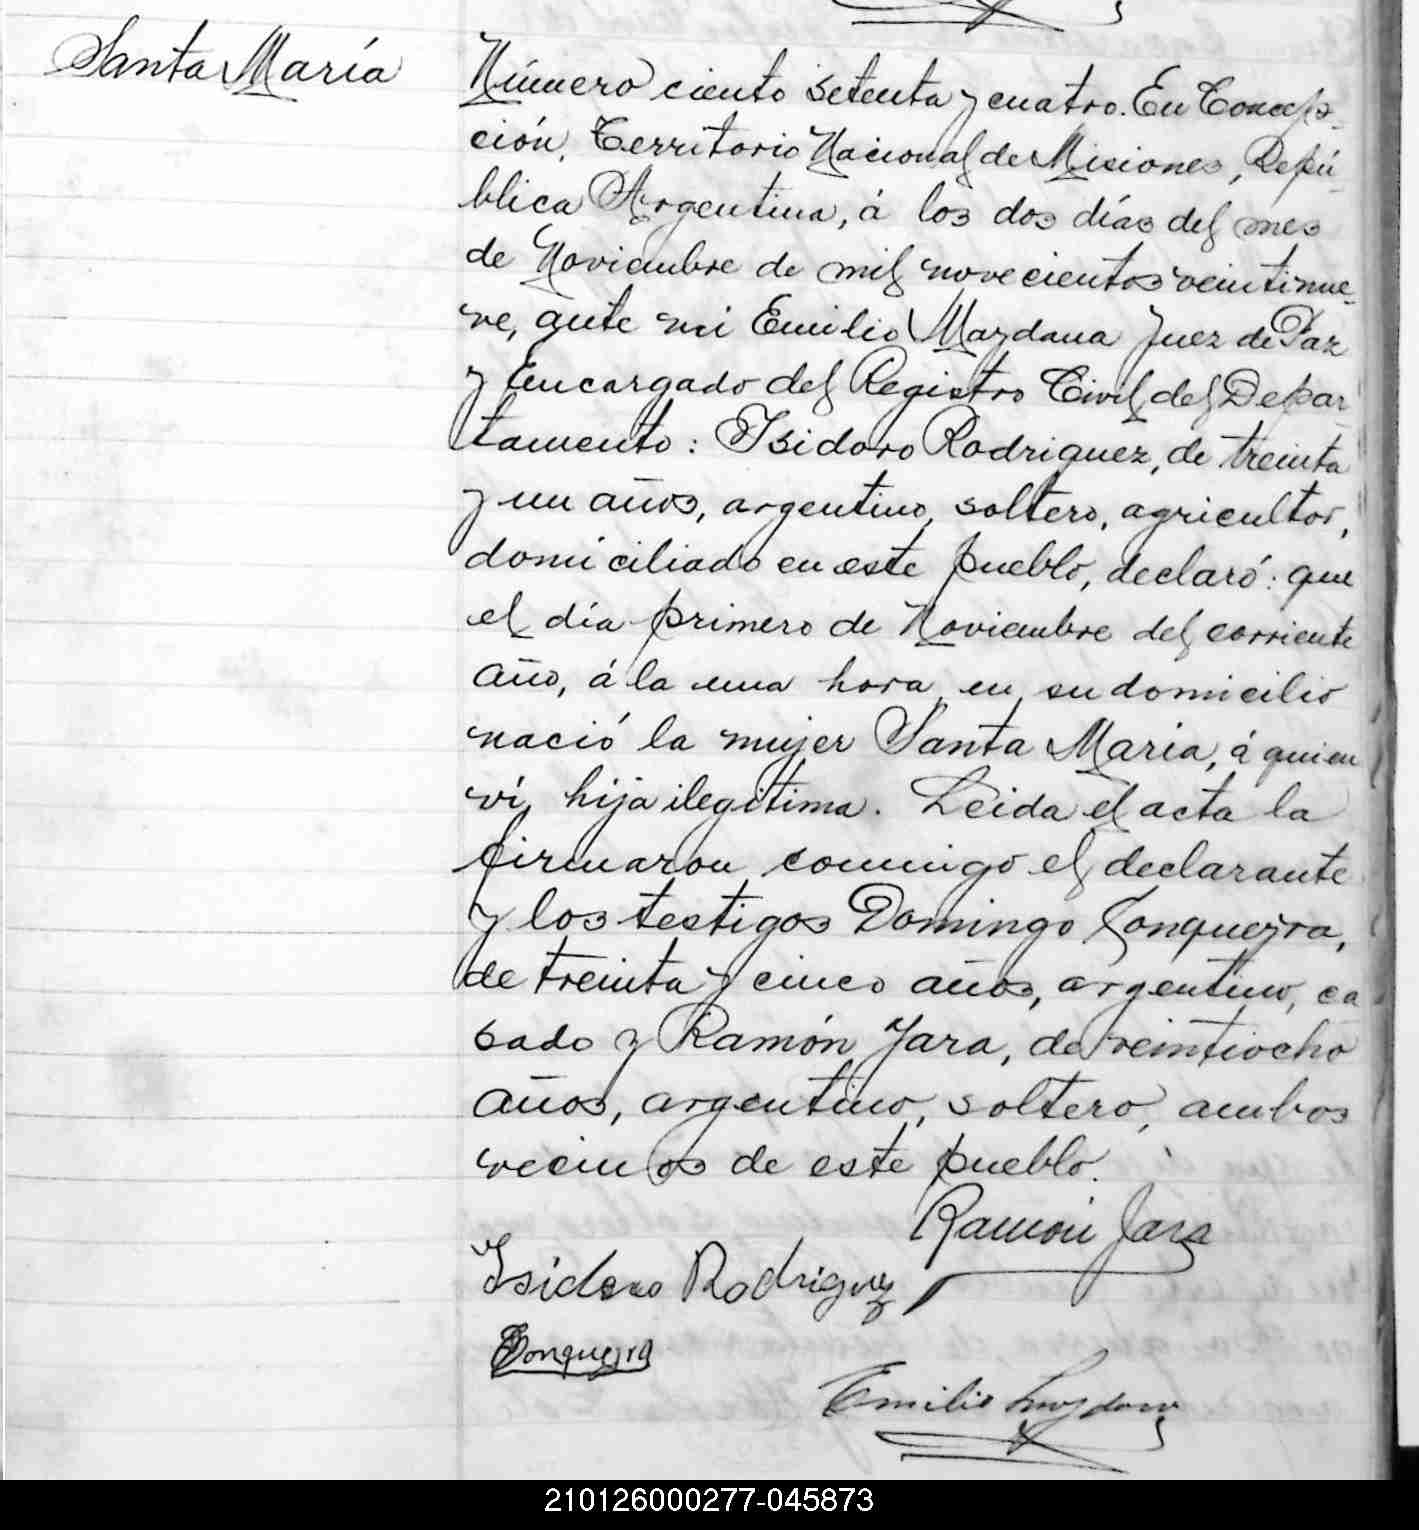 Santa María
Número ciento setenta y cuatro. En Concep-
ción, Territorio Nacional de Misiones, Repú-
blica Argentina, á los dos días del mes
de Noviembre de mil novecientos veintinue-
ve, ante mi Emilio Maydana Juez de Paz
y Encargado del Registro Civil del Depar-
tamento: Isidoro Rodriguez, de treinta
y un años, argentino, soltero, agricultor,
domiciliado en este pueblo, declaró: que
el día primero de Noviembre del corriente
año, á la una hora, en su domicilio
nació la mujer Santa Maria, á quien
ví, hija ilegítima. Leida el acta la
firmaron conmigo el declarante
y los testigos Domingo Conqueyra,
de treinta y cinco años, argentino, ca
sado y Ramón Jara, de veintiocho
años, argentino, soltero, ambos
vecinos de este pueblo.
Ramón Jara
Isidoro Rodriguez
Conqueyra
Emilio Maydana
210126000277-045873